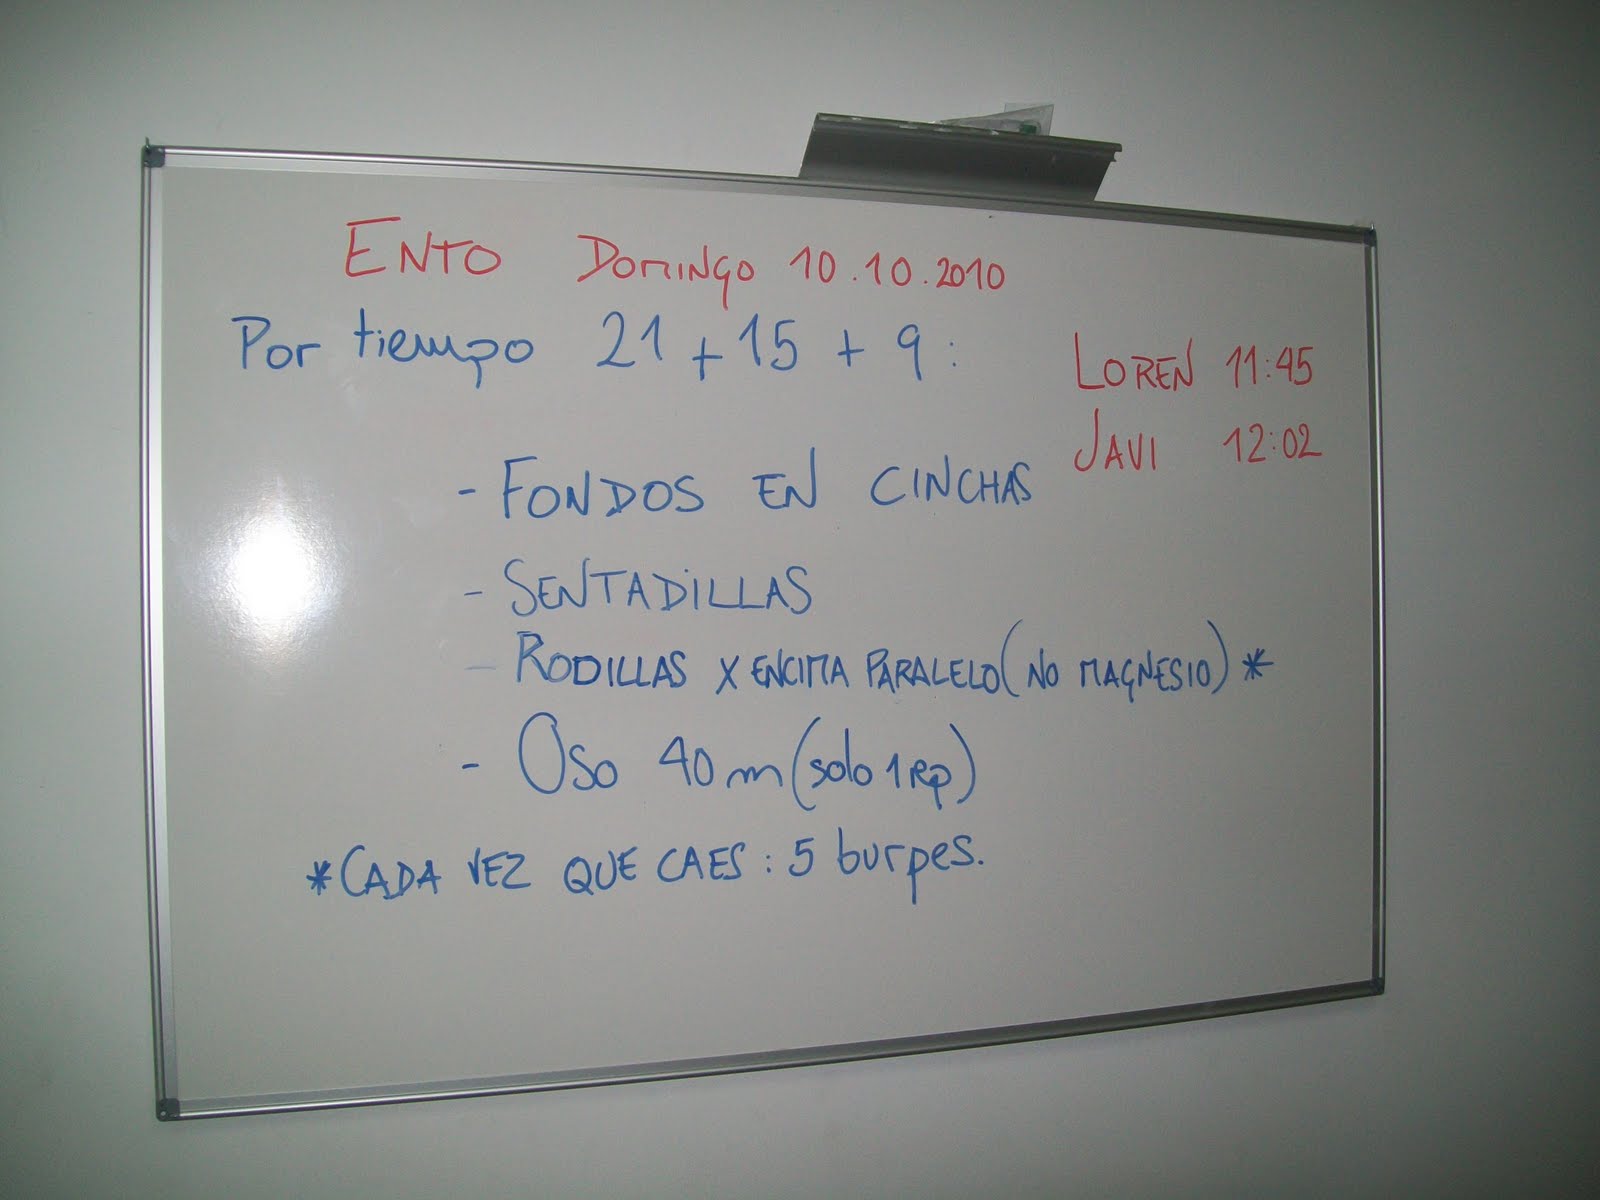 ENTO DOMINGO 10.10.2010
Por tiempo 21 + 15 + 9 :
LOREN 11:45
JAVI 12:02
- FONDOS EN CINCHAS
- SENTADILLAS
- RODILLAS X ENCIMA PARALELO (NO MAGNESIO) *
- OSO 40 m (solo 1 RP)
* CADA VEZ QUE CAES : 5 burpes.